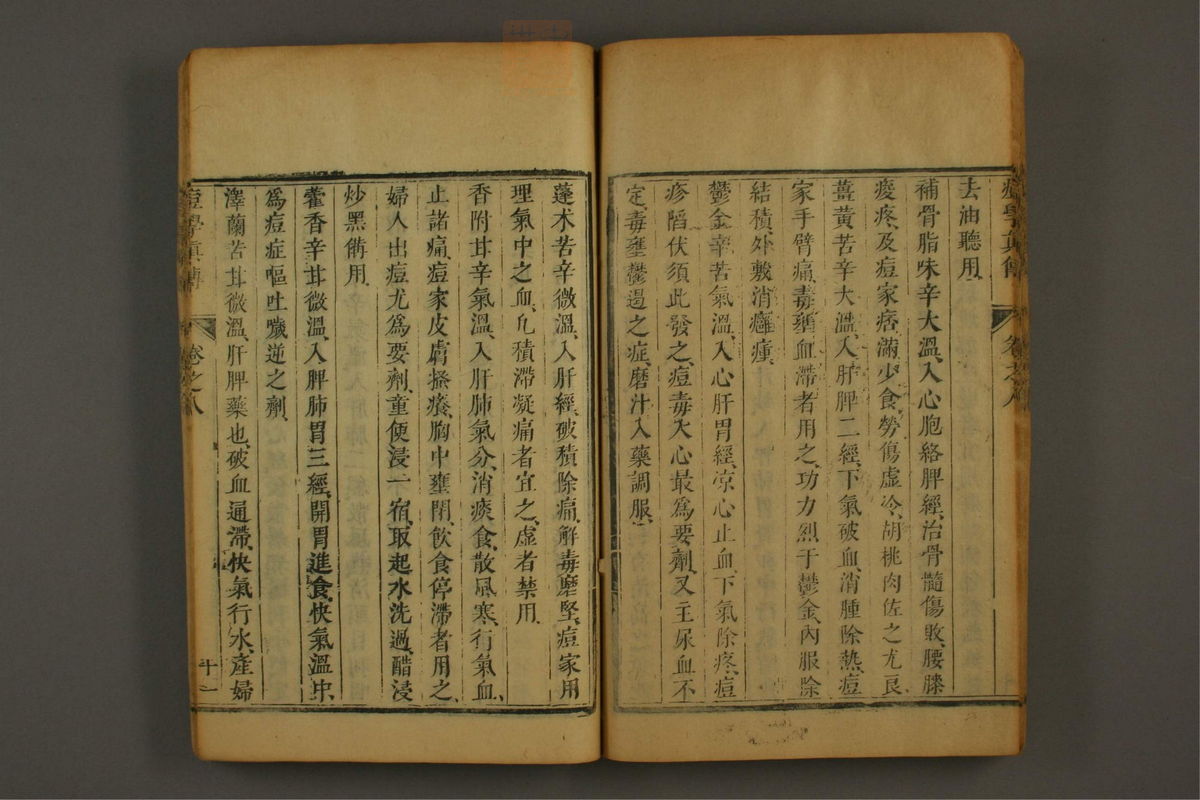 痘學真傳 卷之八
去油聽用
補骨脂味辛大溫、入心胞絡脾經、治骨髓傷敗、腰膝
痠疼、及痘家痞滿、少食勞傷虛冷、胡桃肉佐之尤良
薑黃苦辛大溫、入肝脾二經、下氣破血、消腫除熱、痘
家手臂痛、毒壅血滯者用之、功力烈于鬱金、內服除
結積、外敷消癰腫、
鬱金辛苦氣溫、入心肝胃經、涼心止血、下氣除疼、痘
疹陷伏須此發之、痘毒入心最為要劑、又主尿血不
定、毒壅鬱遏之症、磨汁入藥調服、
蓬术苦辛微溫、入肝經、破積除痛、解毒磨堅、痘家用
理氣中之血、凢積滯凝痛者宜之、虛者禁用、
香附甘辛氣溫、入肝肺氣分、消痰食、散風寒、行氣血、
止諸痛、痘家皮膚搔癢、胸中壅閉、飲食停滯者用之、
婦人出痘尤為要劑、童便浸一宿、取起水洗過、醋浸
炒黑備用、
藿香辛甘微溫、入脾肺胃三經、開胃進食、快氣溫中、
為痘症嘔吐噦逆之劑、
澤蘭苦甘微溫、肝脾藥也、破血通滯、快氣行水、產婦
痘學真傳 卷之八 十一